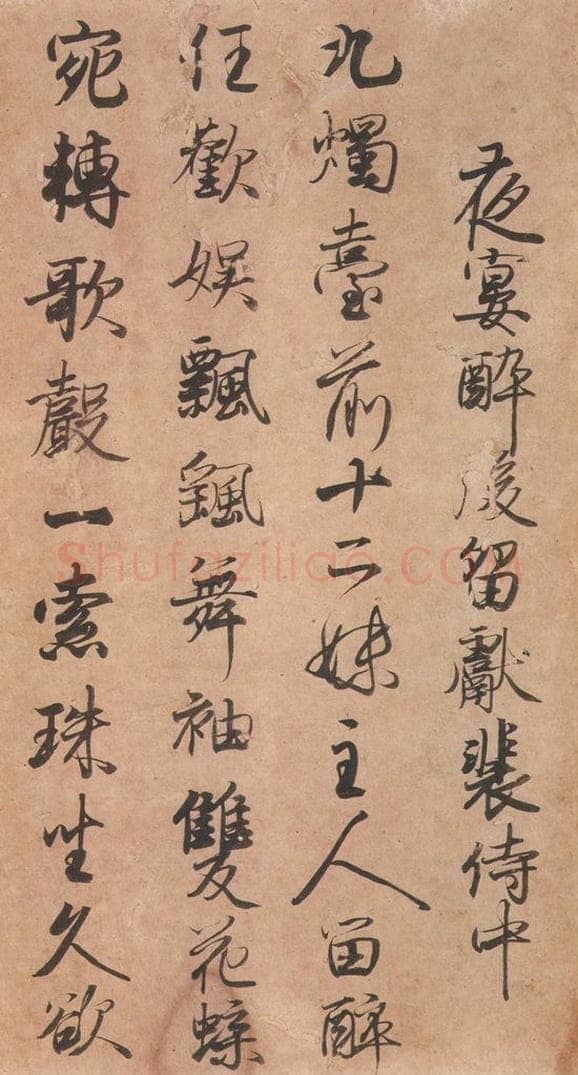 夜宴醉後留獻裴侍中
九燭臺前十二姝主人留醉
任歡娱飄颻舞袖雙花蝶
宛轉歌聲一索珠坐久欲
Shufaziliao.COM